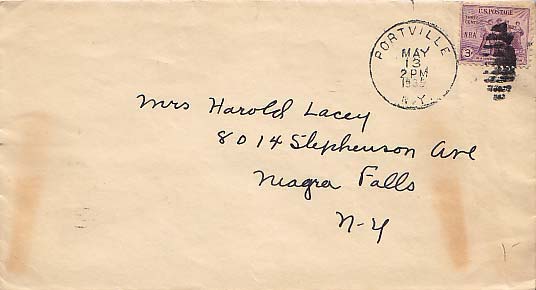 U.S. POSTAGE
THREE CENTS
NRA
3¢
PORTVILLE
MAY
13
2 PM
N.Y.
Mrs Harold Lacey
8014 Stephenson Ave
Niagra Falls
N-Y